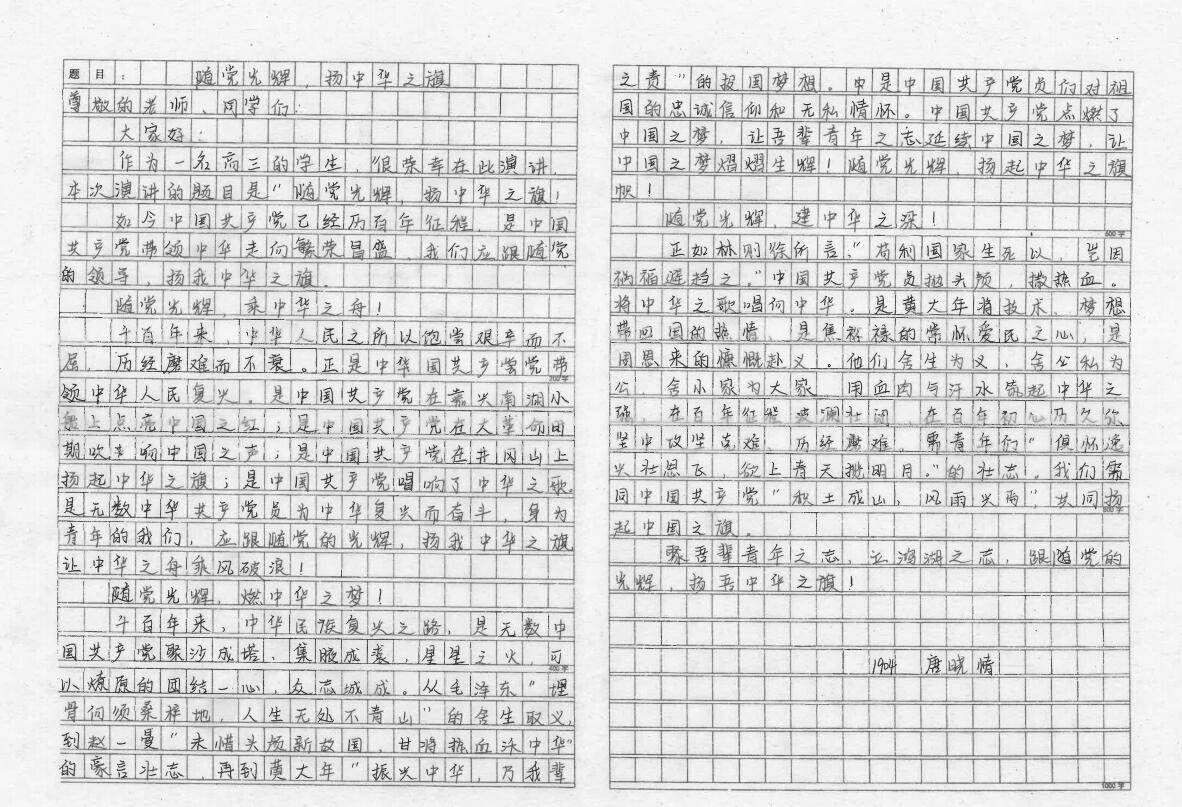 题目: 随党光辉,扬中华之旗
尊敬的老师、同学们:
大家好:
作为一名高三的学生,很荣幸在此演讲,
本次演讲的题目是"随党光辉,扬中华之旗!
如今中国共产党已经历百年征程,是中国
共产党带领中华走向繁荣昌盛,我们应跟随党
的领导,扬我中华之旗。
随党光辉,乘中华之舟!
千百年来,中华人民之所以饱尝艰辛而不
屈,历经磨难而不衰。正是中华国共产党党带
领中华人民复兴。是中国共产党在嘉兴南湖小
船上点亮中国之红;是中国共产党在大革命时
期吹响中国之声;是中国共产党在井冈山上
扬起中华之旗;是中国共产党唱响了中华之歌。
是无数中华共产党员为中华复兴而奋斗,身为
青年的我们,应跟随党的光辉,扬我中华之旗
让中华之舟乘风破浪!
随党光辉,燃中华之梦!
千百年来,中华民族复兴之路,是无数中
国共产党聚沙成塔、集腋成裘,星星之火,可
400字
以燎原的团结一心,众志城成。从毛泽东"埋
骨何须桑梓地,人生无处不青山"的舍生取义,
到赵一曼"未惜头颅新故国,甘将热血沃中华"
的豪言壮志,再到黄大年"振兴中华,乃我辈
之责"的报国梦想。中是中国共产党员们对祖
国的忠诚信仰和无私情怀。中国共产党点燃了
中国之梦,让吾辈青年之志延续中国之梦,让
中国之梦熠熠生辉!随党光辉,扬起中华之旗
帜!
随党光辉,建中华之深!
600字
正如林则徐所言:"苟利国家生死以,岂因
祸福避趋之。"中国共产党员抛头颅,撒热血。
将中华之歌唱向中华。是黄大年将技术、梦想
带回国的热情,是焦裕禄的常怀爱民之心,是
周恩来的慷慨赴义。他们舍生为义,舍公私为
公,舍小家为大家,用血肉与汗水筑起中华之
强,在百年征程波澜壮阔,在百年初心历久弥
坚中攻坚克难,历经磨难,需青年们"俱怀逸
兴壮思飞,欲上青天揽明月。"的壮志。我们需
同中国共产党"积土成山,风雨兴焉"共同扬
800字
起中国之旗。
聚吾辈青年之志,立鸿湖之志,跟随党的
光辉,扬吾中华之旗!
1904 唐晓情
1000字